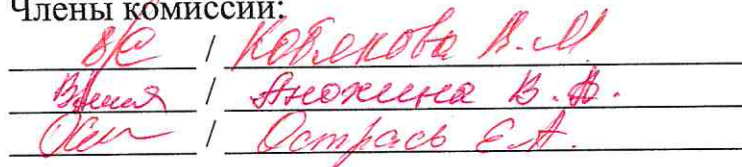 Члены комиссии:
/ Кобякова В. М
/ Анохина В. В.
/ Острась Е. А.